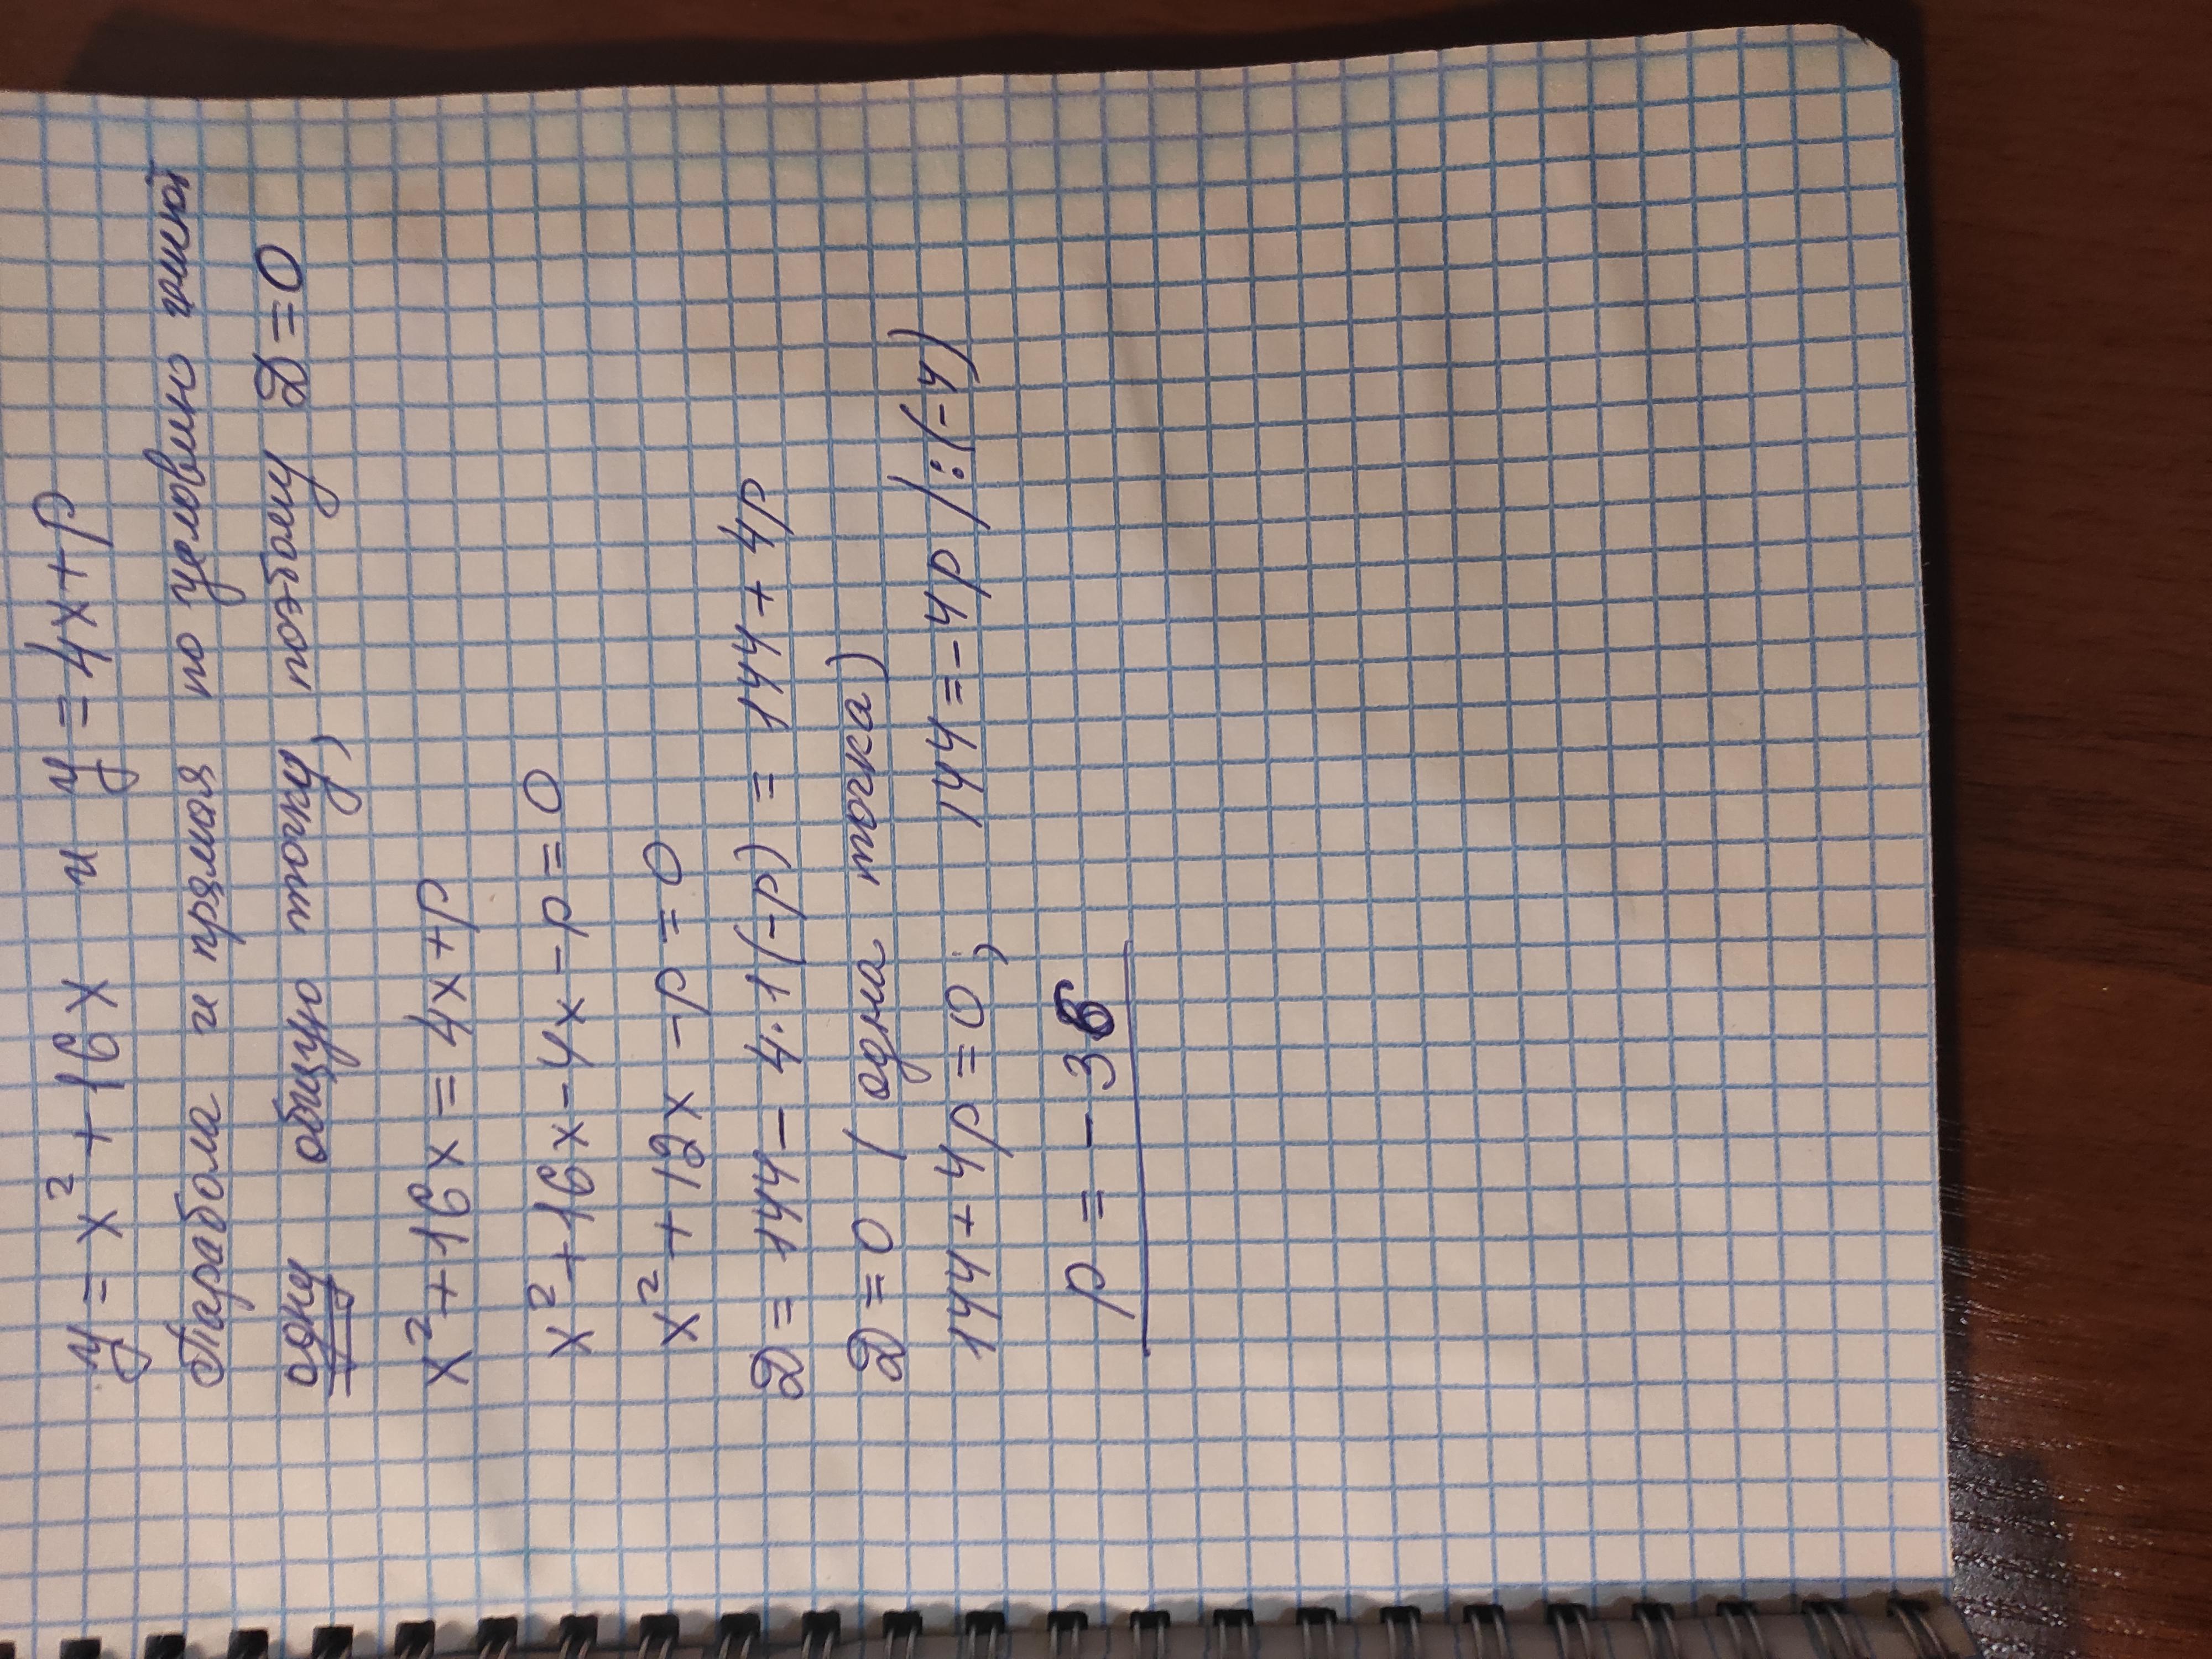 y = x² + 16x и y = 4x + p
Парабола и прямая по условию имеют
одну общую точку, поэтому D = 0
x² + 16x = 4x + p
x² + 16x - 4x - p = 0
x² + 12x - p = 0
D = 144 - 4·1(-p) = 144 + 4p
D = 0 (одна точка)
144 + 4p = 0; 144 = -4p /:(-4)
p = - 36